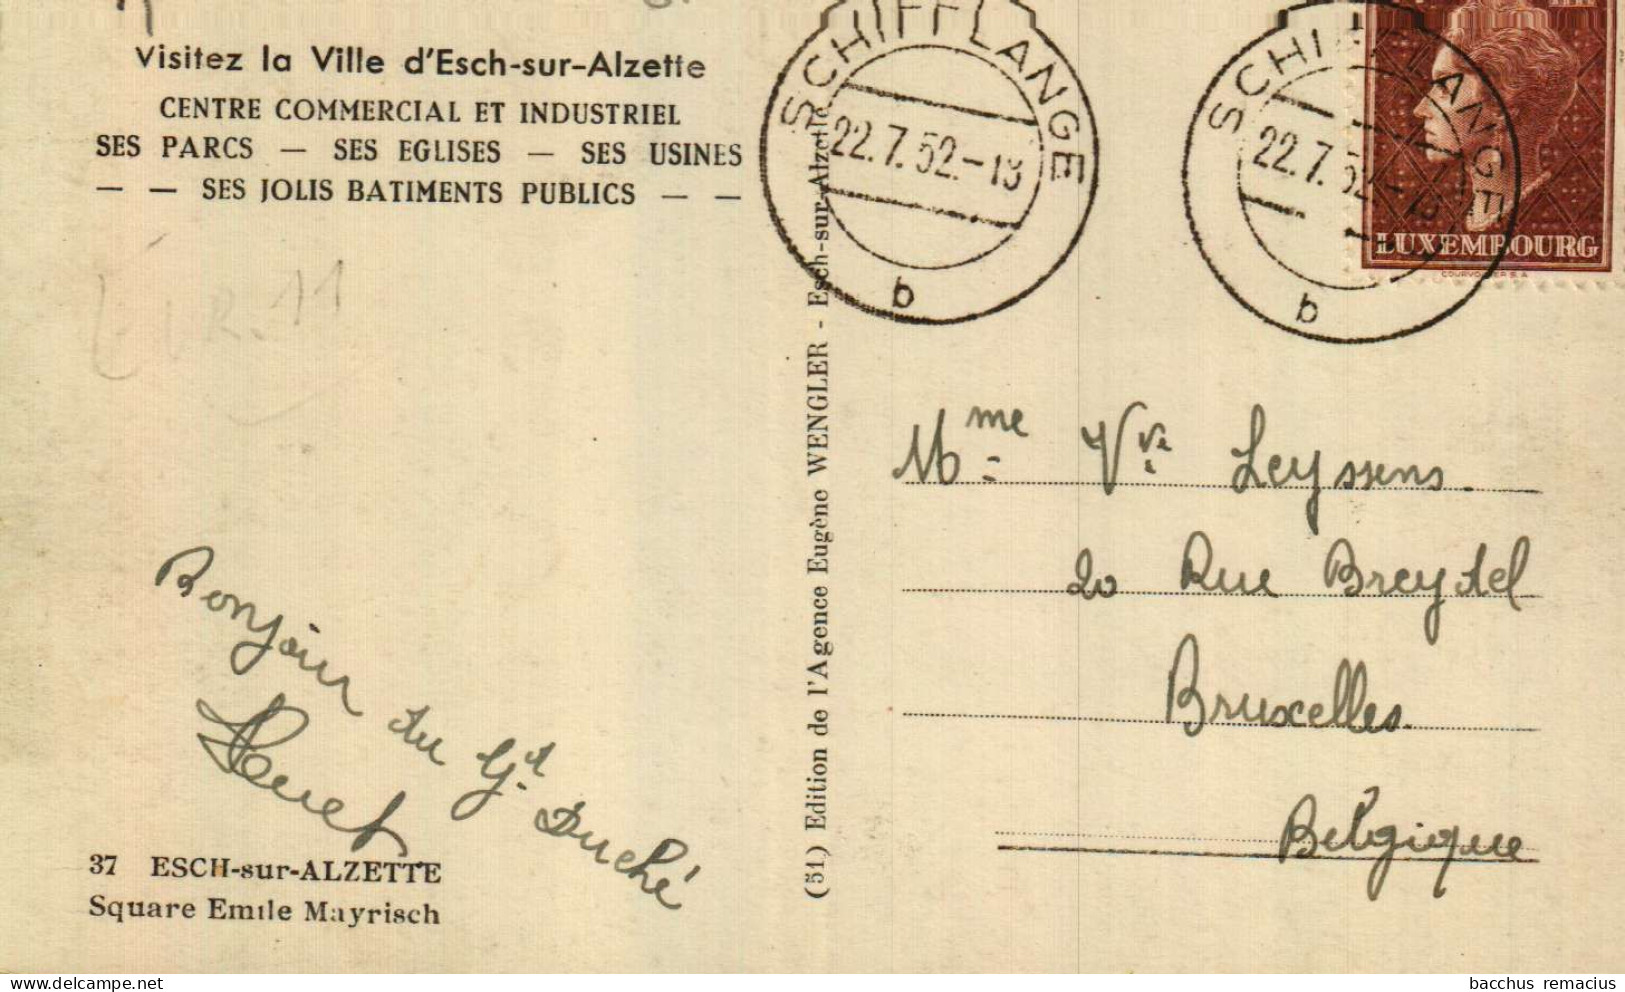 Visitez la Ville d'Esch-sur-Alzette
CENTRE COMMERCIAL ET INDUSTRIEL
SES PARCS — SES EGLISES — SES USINES
— — SES JOLIS BATIMENTS PUBLICS — —
R. 11
Bonjour du Gd Duché
37 ESCH-sur-ALZETTE
Square Emile Mayrisch
(51) Edition de l'Agence Eugène WENGLER - Esch-sur-Alzette
SCHIFFLANGE
22.7.52.-13
b
SCHIFFLANGE
22.7.52.-13
b
LUXEMBOURG
COURVOISIER S.A.
Mme Vve Leyssens.
20 Rue Breydel
Bruxelles.
Belgique
bacchus remacius